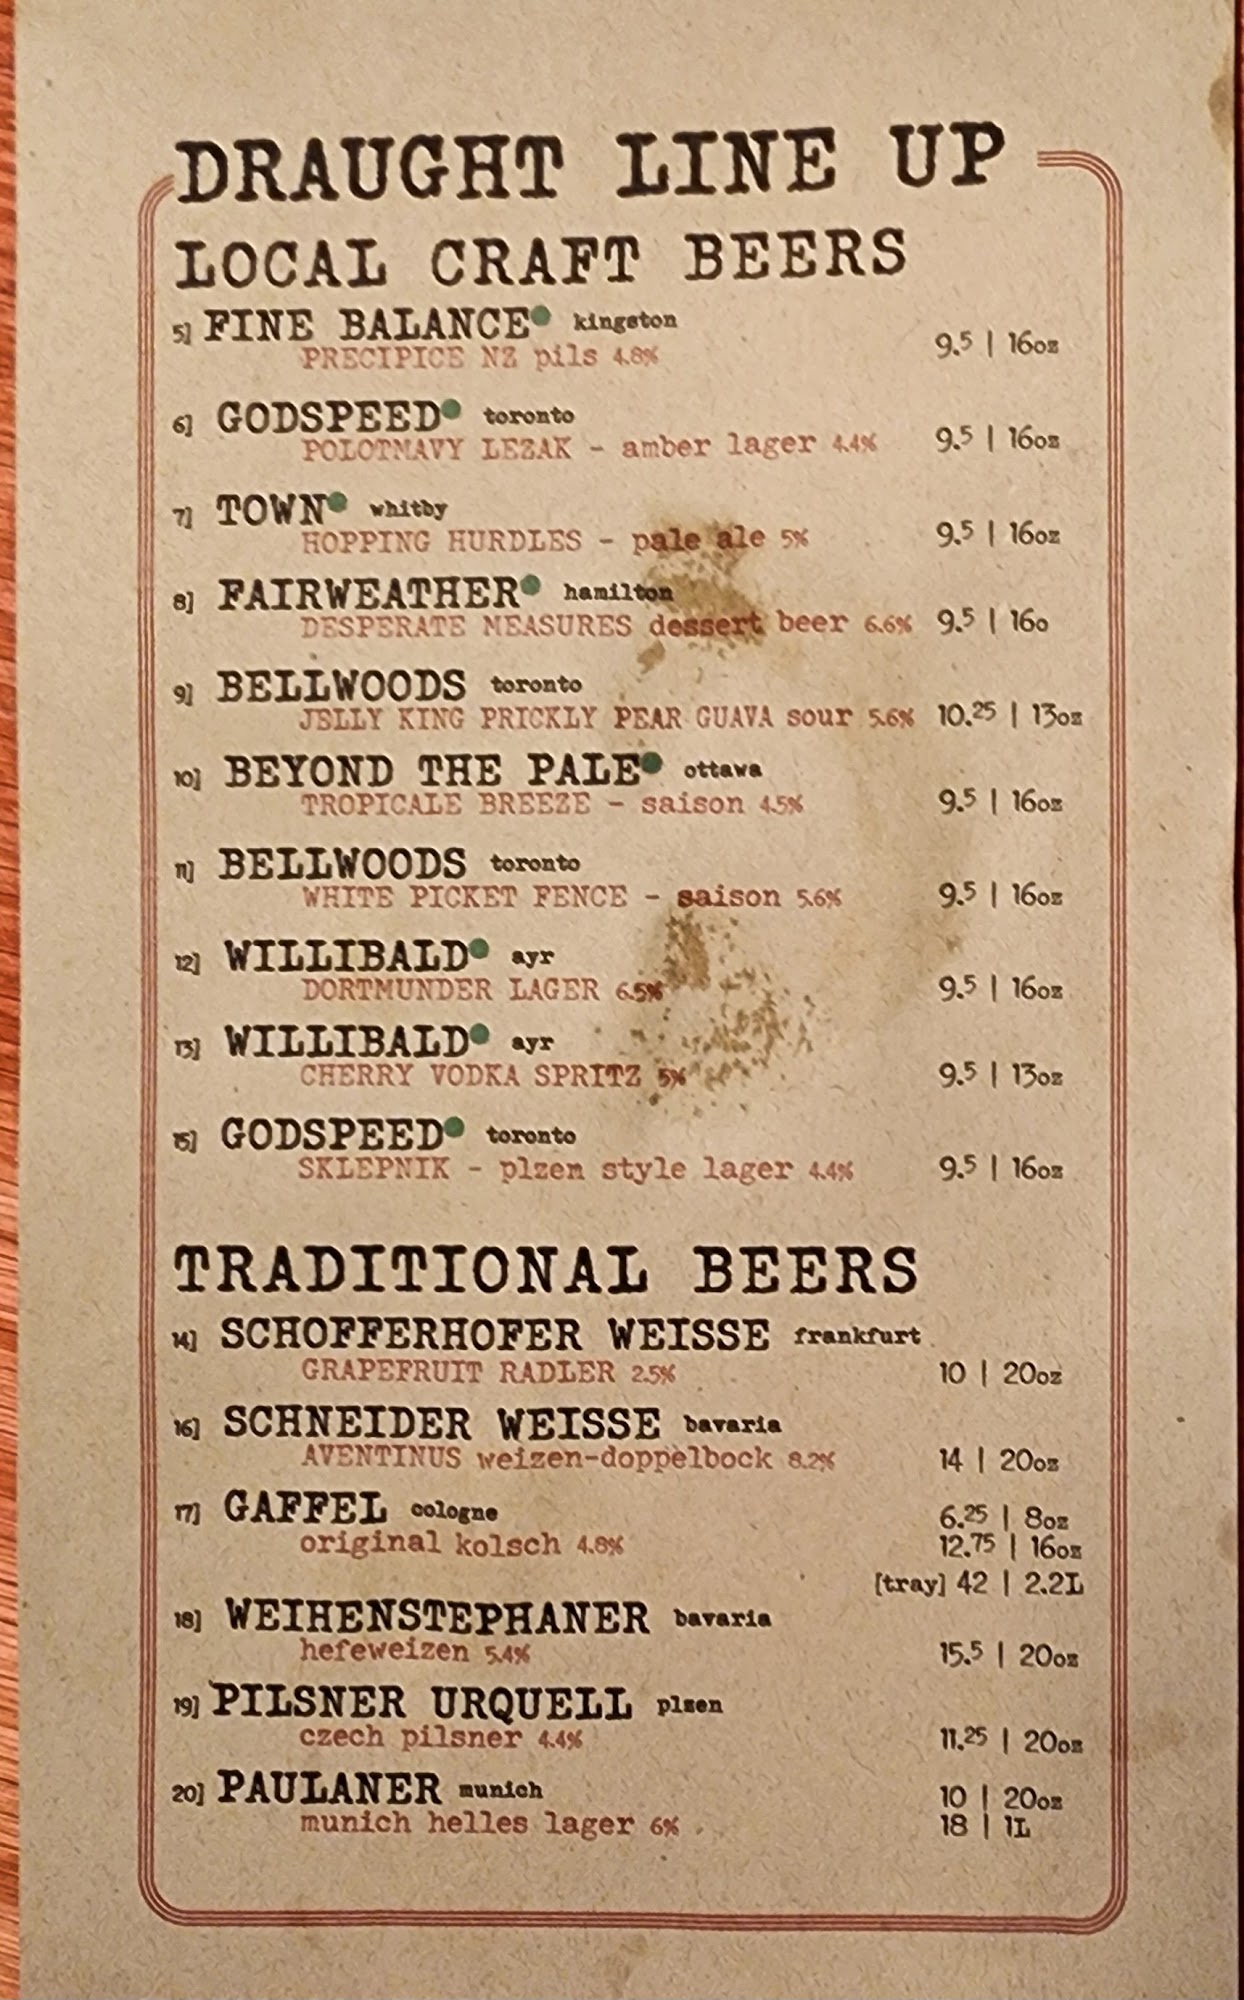 DRAUGHT LINE UP
LOCAL CRAFT BEERS
5] FINE BALANCE kingston
PRECIPICE NZ pils 4.8% 9.5 | 16oz
6] GODSPEED toronto
POLOTMAVY LEZAK - amber lager 4.4% 9.5 | 16oz
7] TOWN whitby
HOPPING HURDLES - pale ale 5% 9.5 | 16oz
8] FAIRWEATHER hamilton
DESPERATE MEASURES dessert beer 6.6% 9.5 | 16o
9] BELLWOODS toronto
JELLY KING PRICKLY PEAR GUAVA sour 5.6% 10.25 | 13oz
10] BEYOND THE PALE ottawa
TROPICALE BREEZE - saison 4.5% 9.5 | 16oz
11] BELLWOODS toronto
WHITE PICKET FENCE - saison 5.6% 9.5 | 16oz
12] WILLIBALD ayr
DORTMUNDER LAGER 6.5% 9.5 | 16oz
13] WILLIBALD ayr
CHERRY VODKA SPRITZ 5% 9.5 | 13oz
15] GODSPEED toronto
SKLEPNIK - plzen style lager 4.4% 9.5 | 16oz
TRADITIONAL BEERS
14] SCHOFFERHOFER WEISSE frankfurt
GRAPEFRUIT RADLER 2.5% 10 | 20oz
16] SCHNEIDER WEISSE bavaria
AVENTINUS weizen-doppelbock 8.2% 14 | 20oz
17] GAFFEL cologne 6.25 | 8oz
original kolsch 4.8% 12.75 | 16oz
[tray] 42 | 2.2L
18] WEIHENSTEPHANER bavaria
hefeweizen 5.4% 15.5 | 20oz
19] PILSNER URQUELL plzen
czech pilsner 4.4% 11.25 | 20oz
20] PAULANER munich 10 | 20oz
munich helles lager 6% 18 | 1L